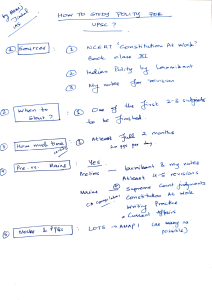 HOW TO STUDY POLITY FOR
UPSC ?
① Sources : ① NCERT "Constitution At Work"
Book class XI
② Indian Polity by Laxmikant
③ My notes for revision
② When to Start ? : ① One of the first 2-3 subjects
to be finished.
③ How much time : ① Atleast full 2 months
per day
④ Pre vs. Mains : Yes
Prelims — Laxmikant & my notes
Atleast 4-5 revisions
Mains — Supreme Court Judgments
Constitution At Work
Writing Practice
+ Current Affairs
⑤ Mocks & PYQs : LOTS → AMAP ! (as many as
possible)